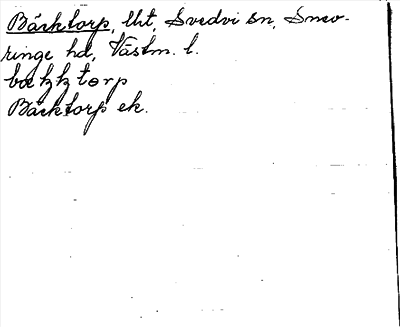 Bäcktorp, lht, Svedvi sn, Snev-
ringe hd, Västm. l.
bækktorp
Bäcktorp ek.